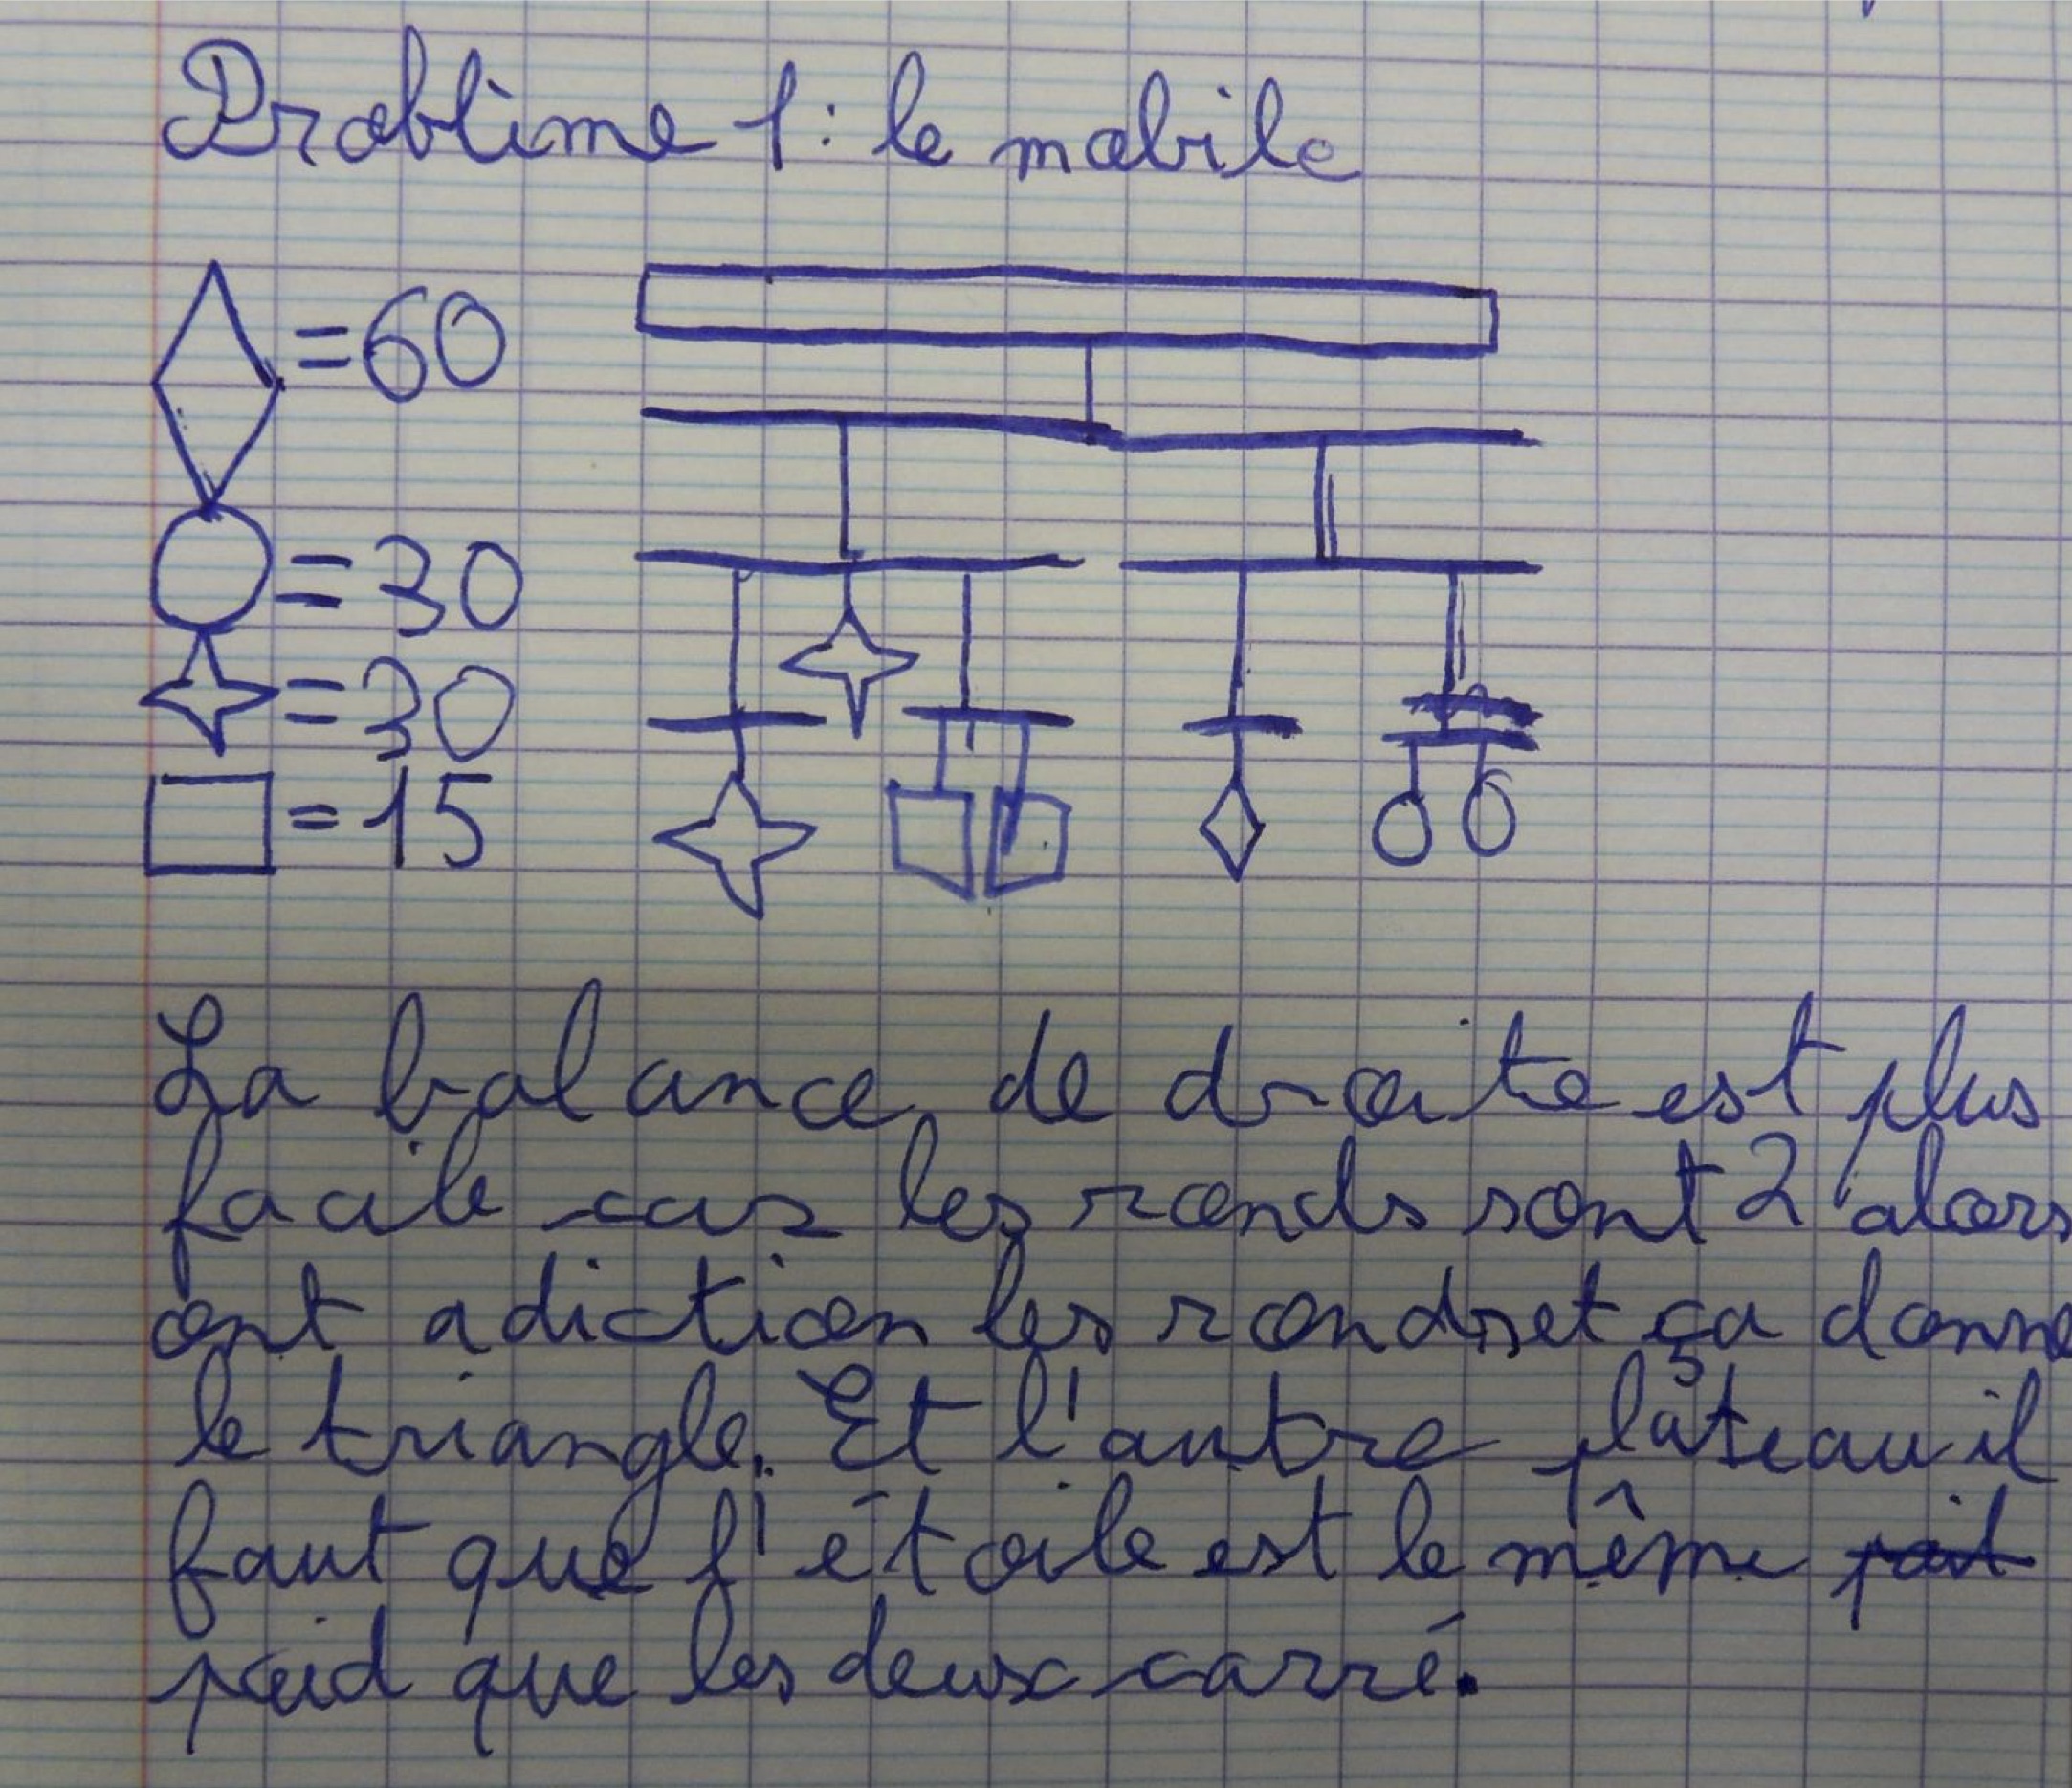 Problème 1: le mobile
=60
=30
=30
=15
La balance de droite est plus
facile car les ronds sont 2 alors
ont adiction les ronds et ça donne
le triangle. Et l'autre plateau il
faut que l'étoile est le même
poid que les deux carré.